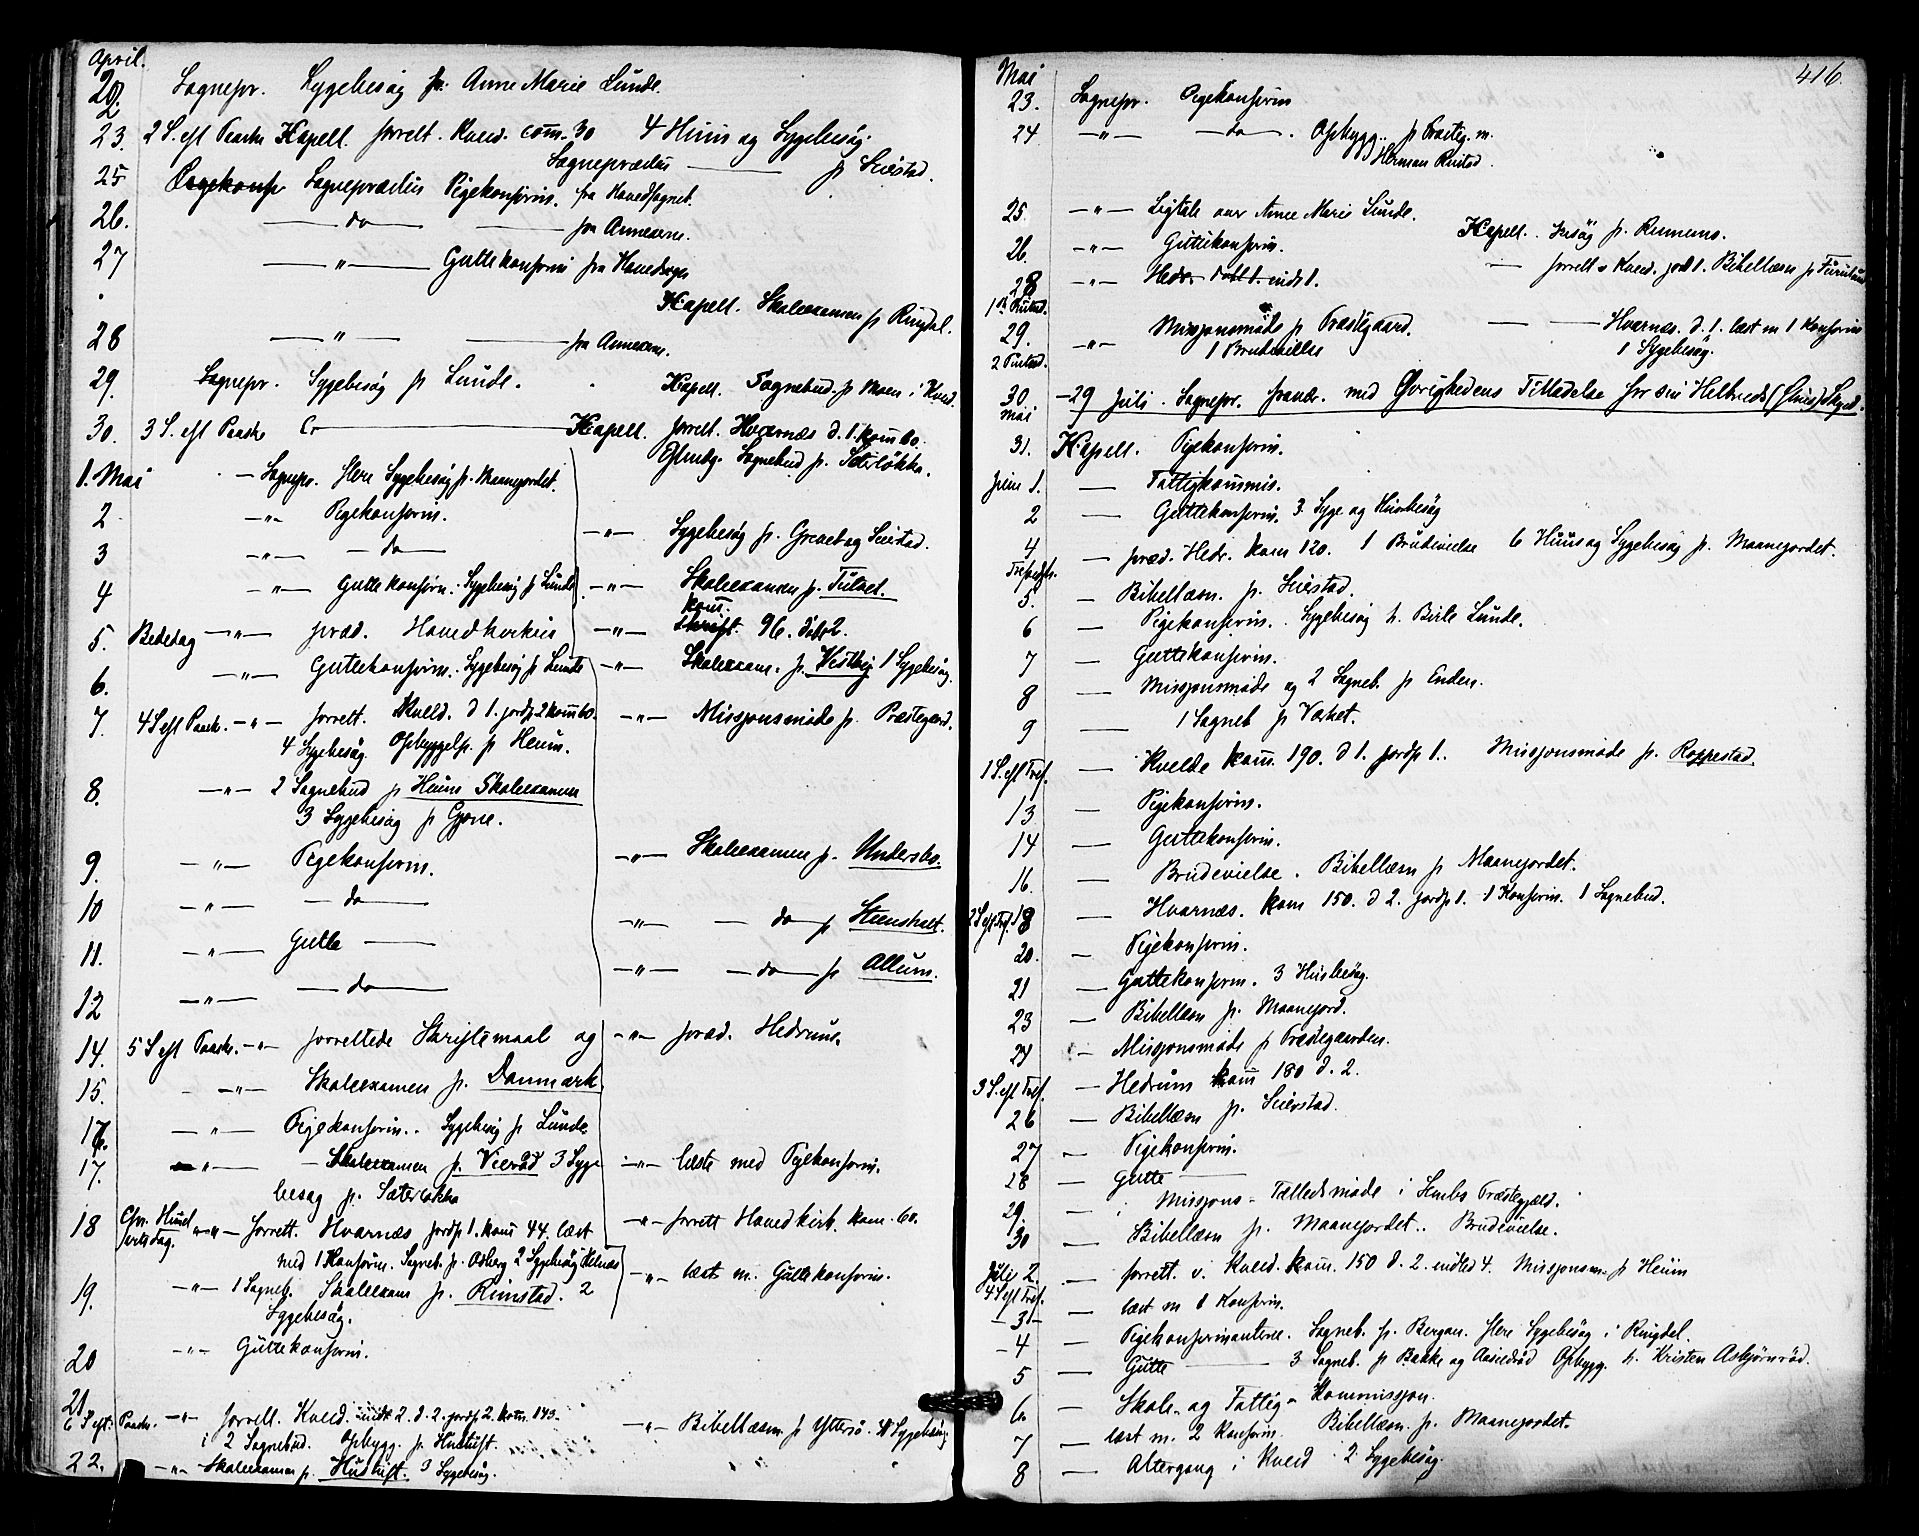 April.
20. Sognepr. Sygebesøg p. Anne Marie Lunde.
23. 2 S. eft Paaske Kapell. forrett. Kved. com. 30 4 Huus og Sygebesøg.
Sognepræsten p Seierstad.
25 Pigekonf Sognepræsten Pigekonfirm. fra Hovedsognet.
26. — do — fra Annexerne.
27 — " — Guttekonfirm fra Hovedsogn
Kapell. Skoleexamen p Ringdal.
28 — " — fra Annexern.
29. Sognepr. Sygebesøg p Lunde. Kapell. Sognebud p Moen i Kved.
30. 3 S. eft Paaske Kapell. forrett. Hvarnæs d. 1. kom 60.
Sognebud p. Sæterløkka.
1. Mai — Sognepr. flere Sygebesøg p. Maanejordet.
2 —"— Pigekonfirm.
—"— Sygebesøg p. Greve og Seierstad.
3 —"— — do —
4 —"— Guttekonfirm. Sygebesøg p Lunde —"— Skoleexamen p. Tutvet.
5. Bededag —"— præd. Hovedkirken —"— kom. Skrift. 96. døbt 2.
6. —"— Guttekonfirm. Sygebesøg p Lunde —"— Skoleexam. p. Vestby 1 Sygebesøg.
7. 4 S eft Paask. —"— forrett. Kveld. d 1. jordp 2 kom 60. —"— Missjonsmøde p. Præstegaard.
4 Sygebesøg. Opbyggelse p Heum.
8. —"— 2 Sognebud p Heum Skoleexamen
3 Sygebesøg p Gjone.
9. —"— Pigekonfirm. —"— Skoleexamen p. Undersbo.
10 —"— — do — —"— — do — p Steensholt.
11. —"— Gutte — —"— — do — p Allum.
12 —"— — do —
14. 5 S eft Paask. —"— forrettede Skriftemaal og —"— præd. Hedrum.
15. —"— Skoleexamen p. Danmark.
16. —"— Pigekonfirm. Sygebesøg p Lunde
17. —"— — Skoleexamen p. Vierød 3 Syge —"— læste med Pigekonfirm.
besøg p. Sæterløkka
18 Chr. Himmel fartsdag. —"— forrett. Hvarnæs jordp 1. kom 44. læst —"— forrett Hovedkirk. kom. 60.
med 1 Konfirm. Sogneb. p. Odberg 2 Sygebesøg
19. —"— 1 Sogneb. Skoleexam p. Rimstad. 2 —"— læst m. Guttekonfirm.
Sygebesøg.
20 —"— Guttekonfirm.
21. 6 S eft Paaske. —"— forrett. Kved. indt 2. d. 2. jordp 2. kom. 143. —"— Bibellæsn. p Ytterø. Sygebesøg
i 2 Sognebud. Opbygg. p. Hustuft.
22. —"— Skoleexamen p. Hustuft. 3 Sygebesøg.
416.
Mai
23. Sognepr. Pigekonfirm
24 —"— — do — . Opbygg. p Præsteg. m.
Herman Rustad.
25. —"— Ligtale over Anne Marie Lunde.
26. —"— Guttekonfirm. Kapell. besøg p. Rimmens.
28 —"— Hedr. indt 1. — forrett v Kved. jord 1. Bibellæsn p Furulund
1ste Pintsed.
29. —"— Missjonsmøde p Præstegaard. — — Hvarnæs. d. 1. læst m 1 Konfirm
2 Pintsed. 1 Brudevielse 1 Sygebesøg.
30 mai — 29 Juli. Sognepr. fravær. med Øvrighedens Tilladelse for sin Helbreds Skyld.
31. Kapell. Pigekonfirm.
Juni 1. — Fattigkommis.
2 — Guttekonfirm. 3 Syge og Huusbesøg
4 Trefoldighs. — præd. Hedr. kom 120. 1 Brudevielse 6 Huus og Sygebesøg p. Maanejordet.
5. — Bibellæsn. p. Seierstad.
6 — Pigekonfirm. Sygebesøg h. Berte Lunde.
7 — Guttekonfirm.
8 — Missjonsmøde og 2 Sogneb. p Enden.
9 — 1 Sogneb p Værket.
1 S. eft Tref. — Kvelde kom. 190. d 1. jordp 1. Missjonsmøde p. Roppestad.
13 — Pigekonfirm.
14 — Guttekonfirm.
16. — Brudevielse. Bibellæsn p Maanejordet.
2 S eft Tref. 18 — Hvarnæs. kom 150. d 2. jordp 1. 1 Konfirm. 1 Sognebud.
20. — Pigekonfirm.
21 — Guttekonfirm. 3 Husbesøg.
23 — Bibellæsn p. Maanejord.
24 — Missjonsmøde p Præstegaarden.
3 S. eft Tref. — Hedrum kom 180 d. 2.
26 — Bibellæsn p. Seierstad.
27 — Pigekonfirm.
28 — Gutte —
29. Missjons-Fælledsmøde i Sembs Præstegjæld.
30 — Bibellæsn p. Maanejordet. Brudevielse.
Juli 2. 4 S eft Tref. — forrett. v. Kved. kom. 150 d. 2. indled 4. Missjonsm. p Heum
— 3 — — læst m 1 Konfirm.
4 — Pigekonfirmanterne. Sogneb. p. Bergan. flere Sygebesøg i Ringdal.
5 — Gutte — 3 Sogneb. p Bakke og Aasildrød Opbygg. h. Kristen Asbjørnrød.
6. — Skole- og Fattig-Kommissjon.
7 — læst m. 2 Konfirm. Bibellæsn. p. Maanejordet.
8 — Altergang i Kved 2 Sygebesøg.